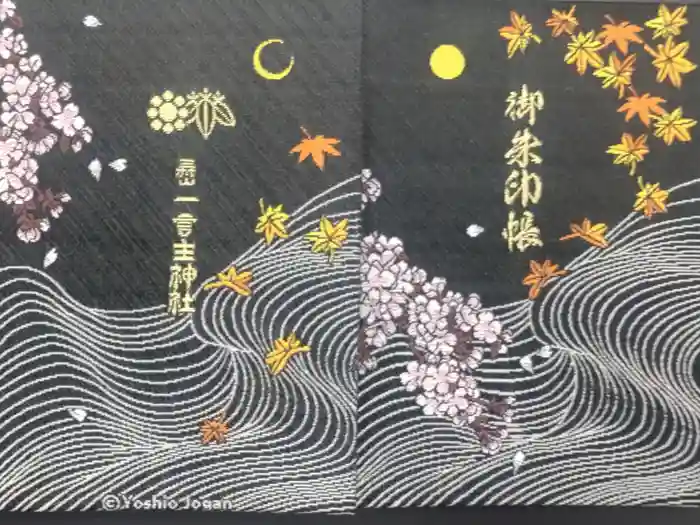 御朱印帳
一言主神社
©Yoshio Jogan